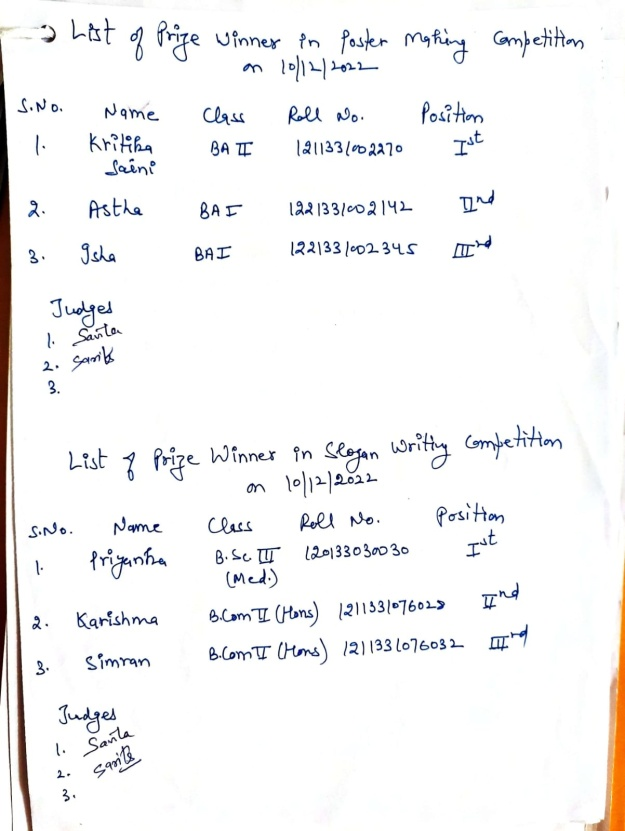 List of Prize Winner in Poster Making Competition
on 10/12/2022
S.No. Name Class Roll No. Position
1. Kritika Saini BA II 121133/002270 Ist
2. Astha BA I 122133/002142 IInd
3. Isha BA I 122133/002345 IIIrd
Judges
1. Savita
2. Sarita
3.
List of Prize Winner in Slogan Writing Competition
on 10/12/2022
S.No. Name Class Roll No. Position
1. Priyanka B.Sc III (Med.) 120133030030 Ist
2. Karishma B.Com II (Hons) 1211331076028 IInd
3. Simran B.Com II (Hons) 1211331076032 IIIrd
Judges
1. Savita
2. Sarita
3.